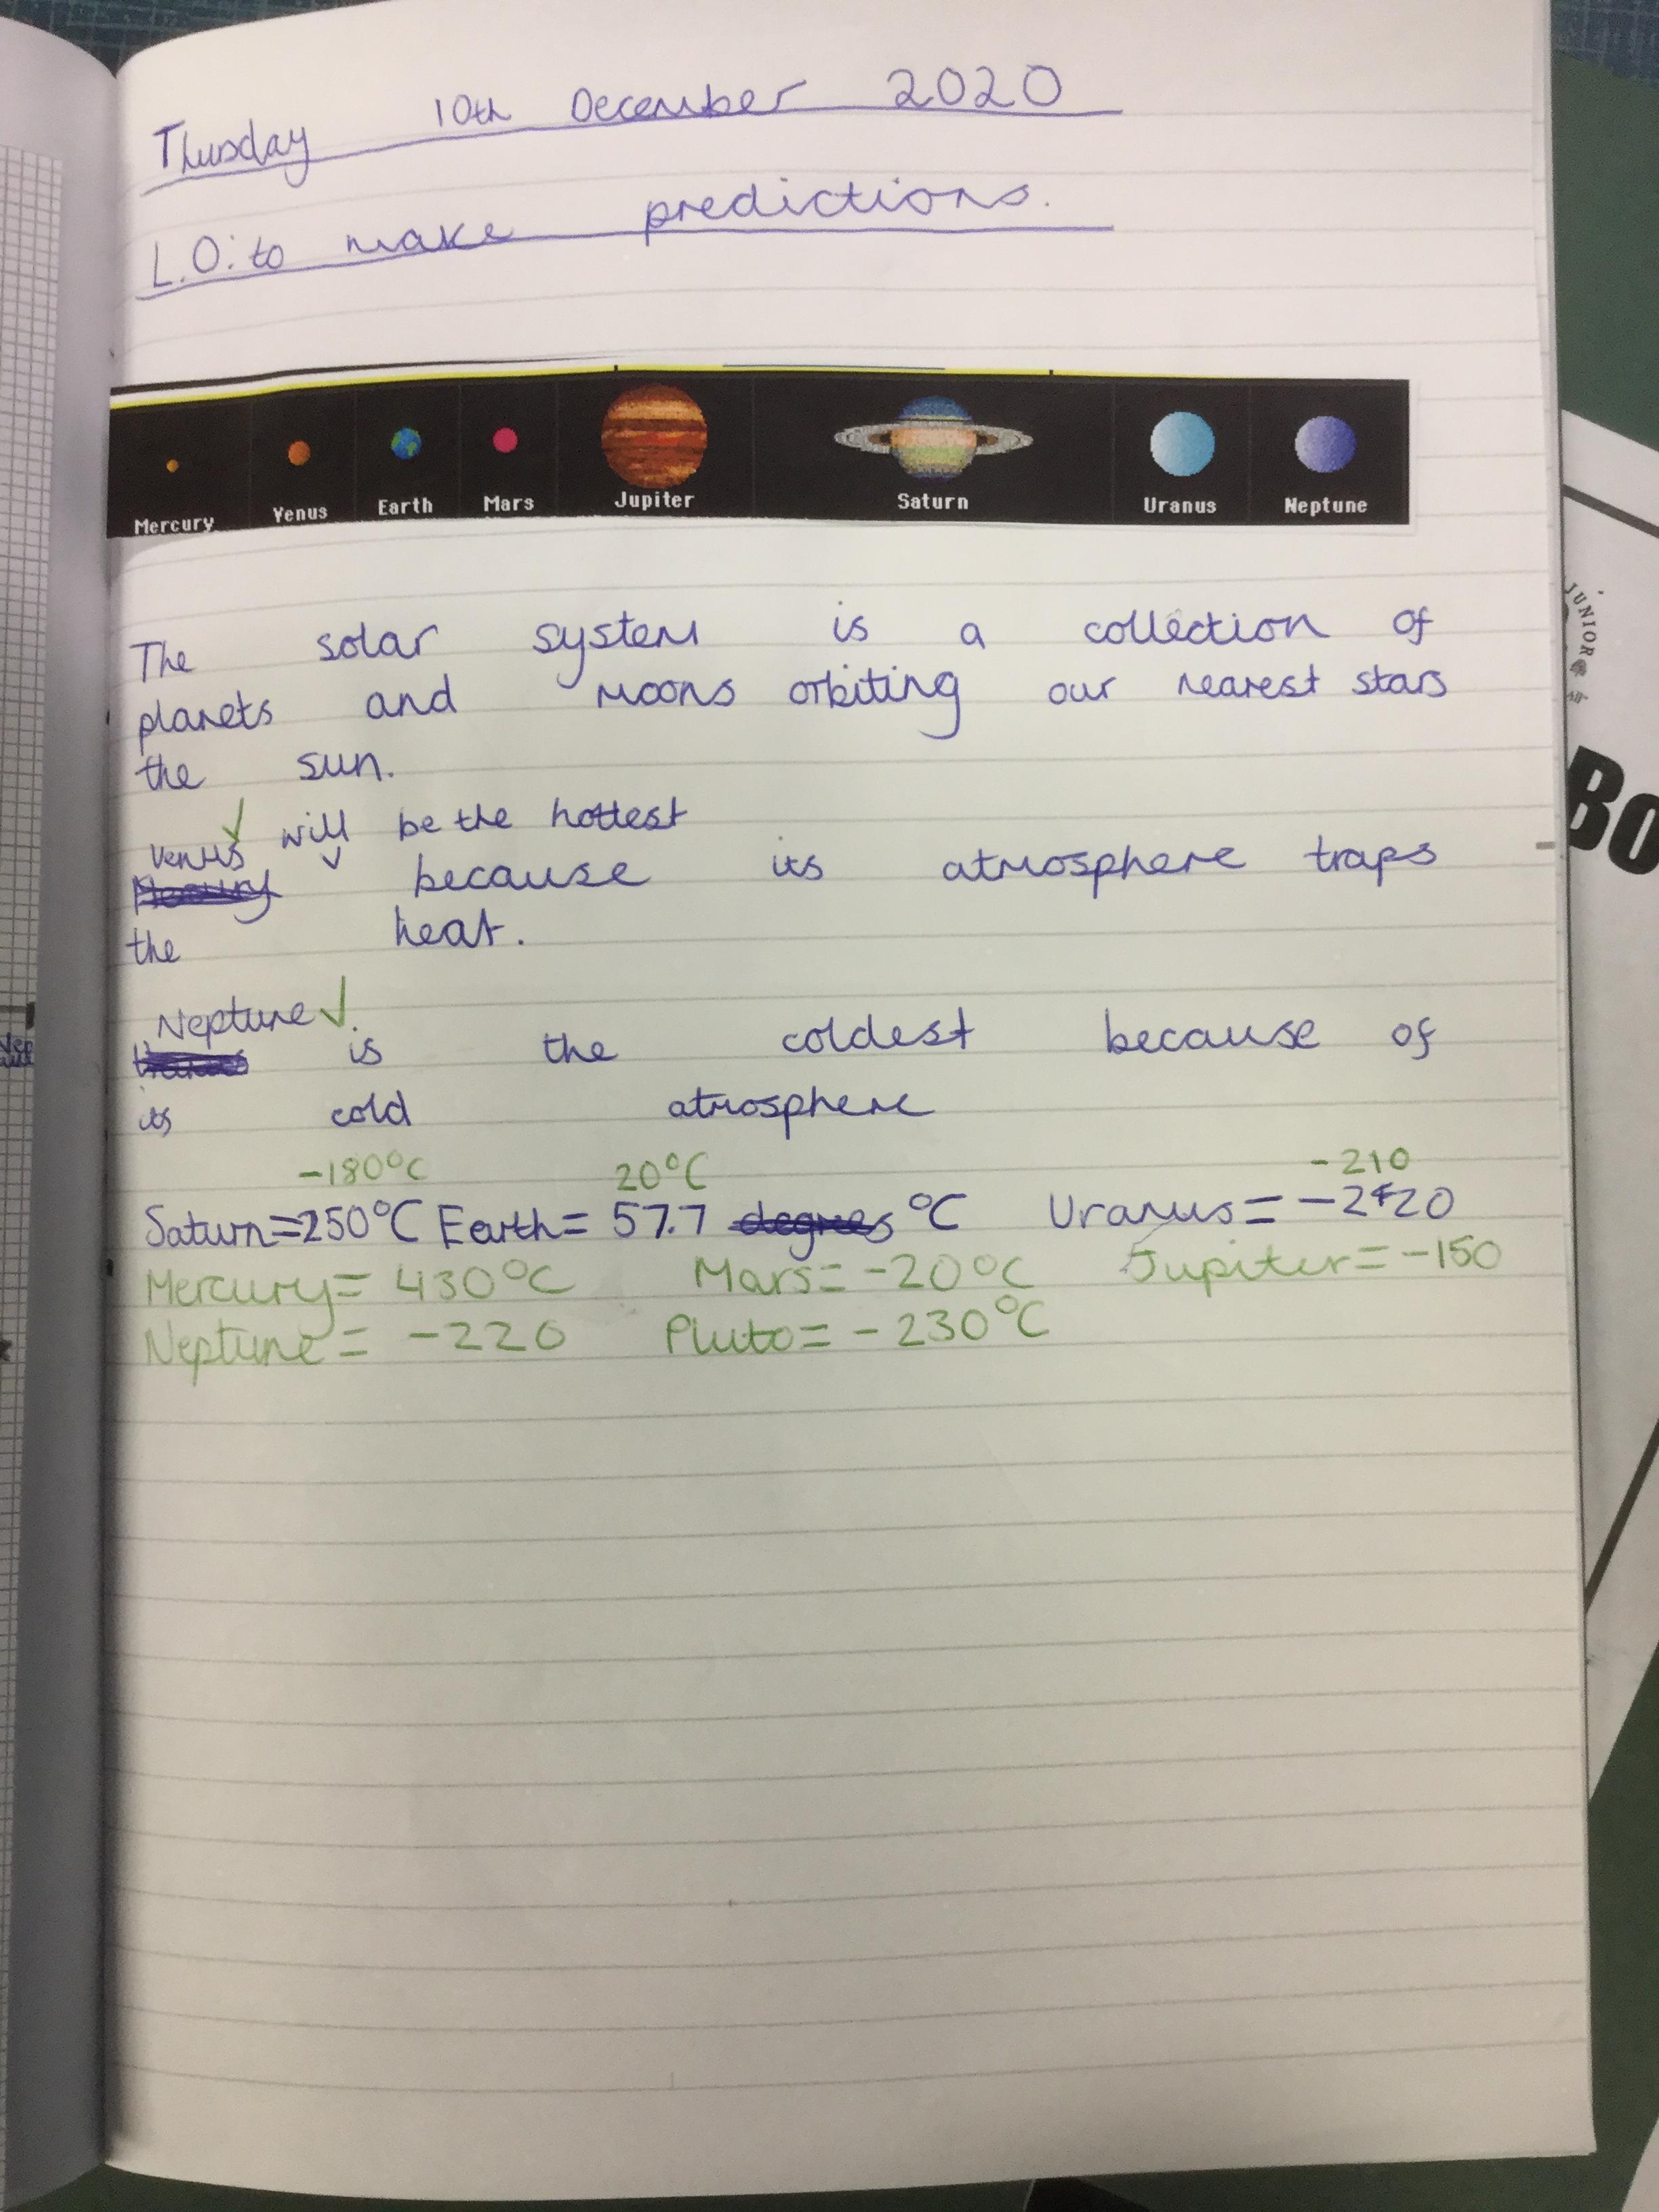 Thursday 10th December 2020
L.O: to make predictions.
Mercury Venus Earth Mars Jupiter Saturn Uranus Neptune
The solar system is a collection of
planets and moons orbiting our nearest stars
the sun.
Venus will be the hottest
because its atmosphere traps
the heat.
Neptune
is the coldest because of
its cold atmosphere
-180°C 20°C -210
Saturn=250°C Earth= 57.7 degrees °C Uranus= -220
Mercury= 430°C Mars= -20°C Jupiter= -150
Neptune= -220 Pluto= -230°C
JUNIOR
Bo